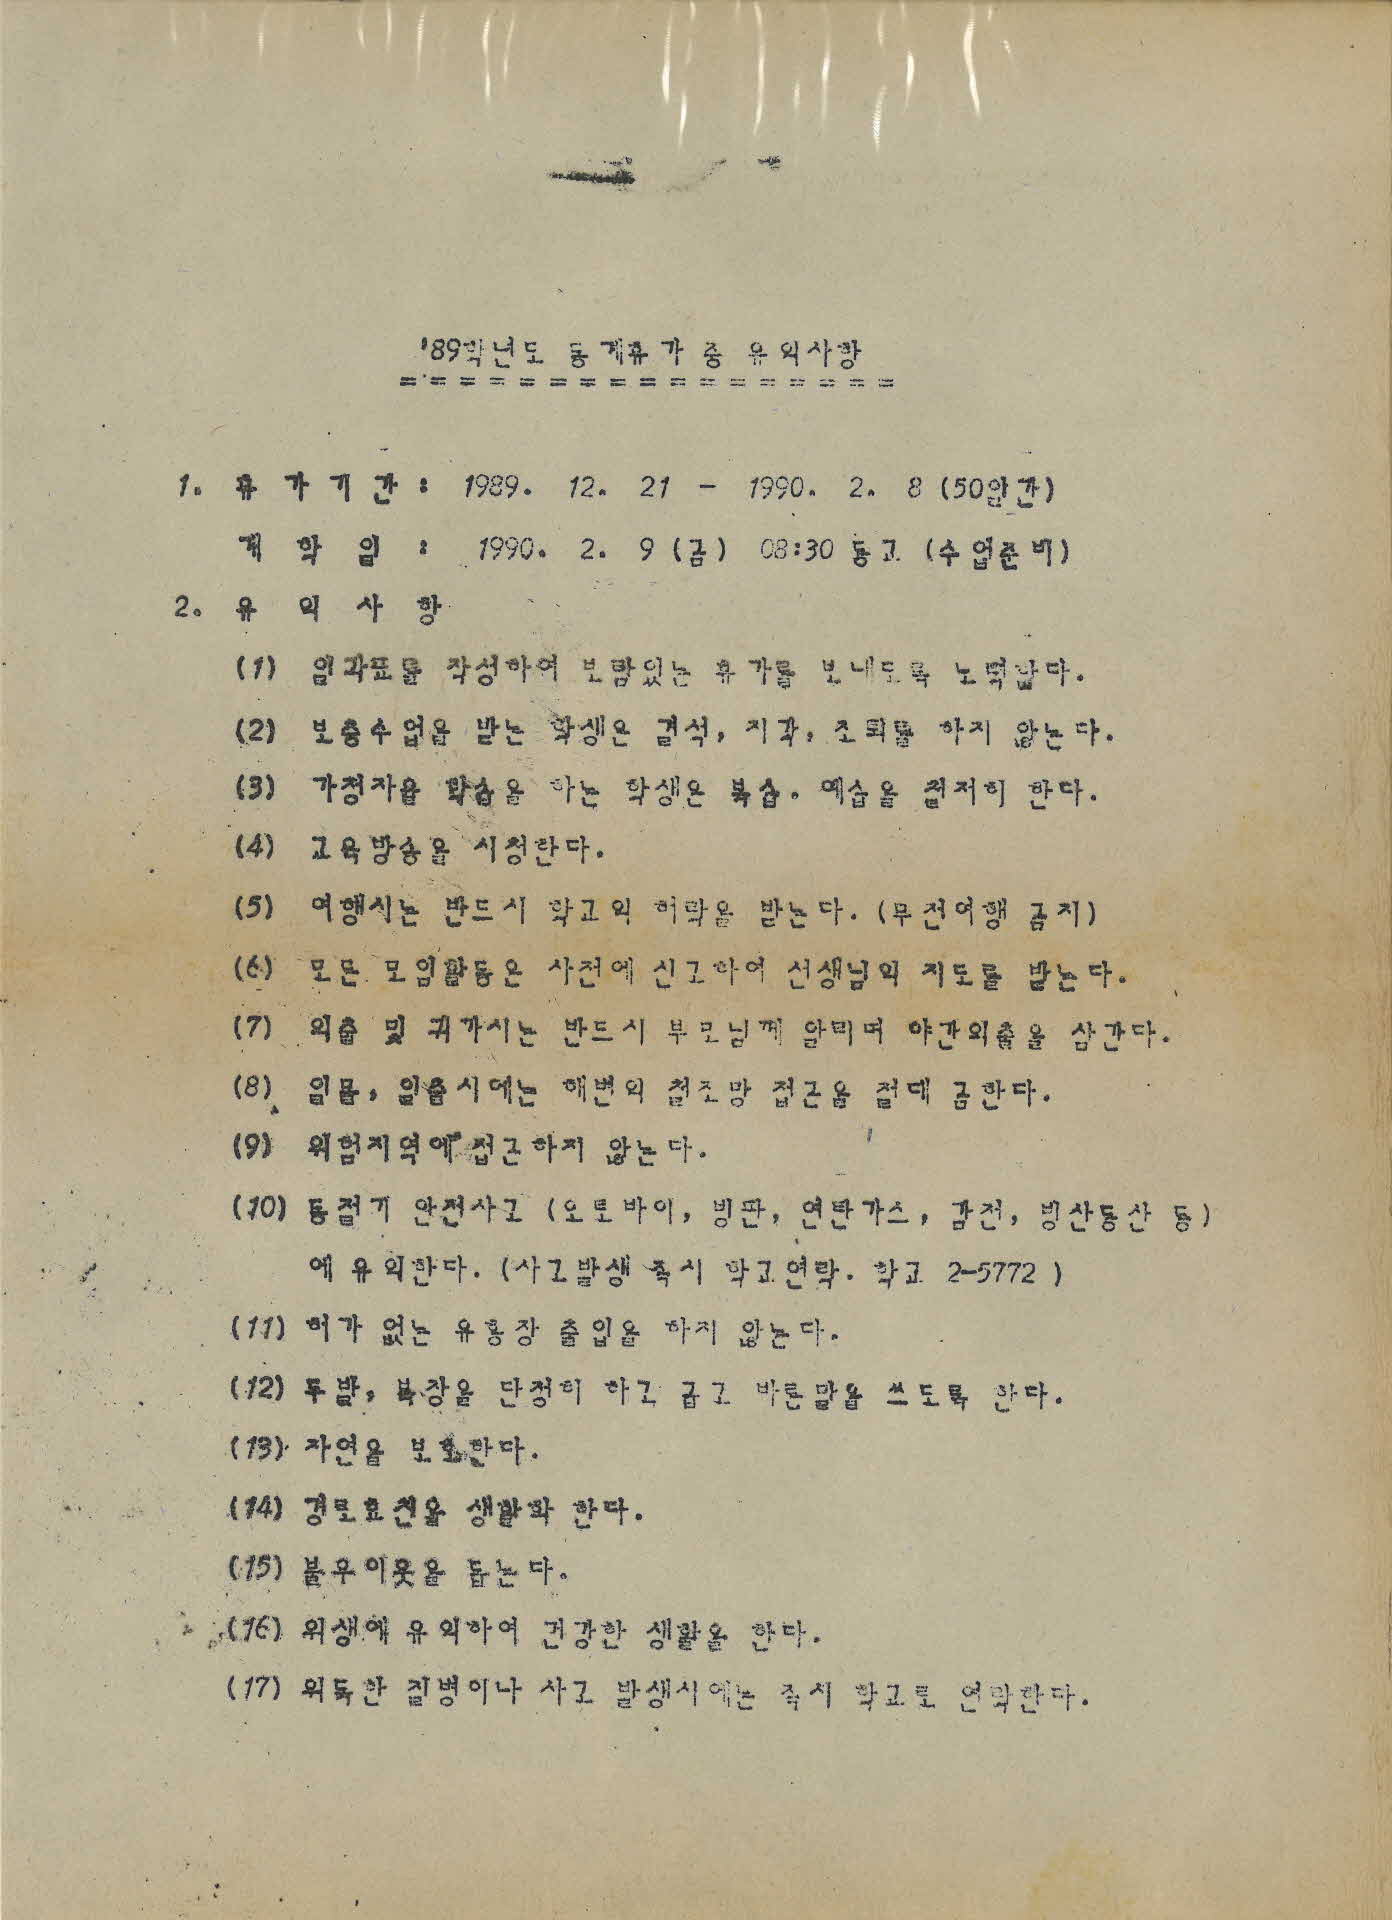 '89학년도 동계휴가 중 유의사항
= = = = = = = = = = = = = = = = =
1. 휴 가 기 간 : 1989. 12. 21 - 1990. 2. 8 (50일간)
개 학 일 : 1990. 2. 9 (금) 08:30 등교 (수업준비)
2. 유 의 사 항
(1) 일과표를 작성하여 보람있는 휴가를 보내도록 노력한다.
(2) 보충수업을 받는 학생은 결석, 지각, 조퇴를 하지 않는다.
(3) 가정자율 학습을 하는 학생은 복습. 예습을 철저히 한다.
(4) 교육방송을 시청한다.
(5) 여행시는 반드시 학교의 허락을 받는다. (무전여행 금지)
(6) 모든 모임활동은 사전에 신고하여 선생님의 지도를 받는다.
(7) 외출 및 귀가시는 반드시 부모님께 알리며 야간외출을 삼간다.
(8) 일몰, 일출시에는 해변의 철조망 접근을 절대 금한다.
(9) 위험지역에 접근하지 않는다.
(10) 동절기 안전사고 (오토바이, 빙판, 연탄가스, 감전, 빙산등산 등)
에 유의한다. (사고발생 즉시 학교연락. 학교 2-5772 )
(11) 허가 없는 유흥장 출입을 하지 않는다.
(12) 두발, 복장을 단정히 하고 곱고 바른말을 쓰도록 한다.
(13) 자연을 보호한다.
(14) 경로효친을 생활화 한다.
(15) 불우이웃을 돕는다.
(16) 위생에 유의하여 건강한 생활을 한다.
(17) 위독한 질병이나 사고 발생시에는 즉시 학교로 연락한다.